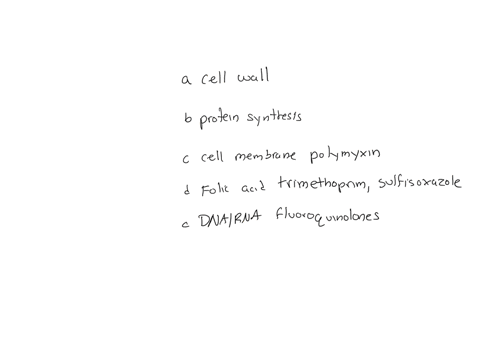 a cell wall
b protein synthesis
c cell membrane polymyxin
d Folic acid trimethoprim, sulfisoxazole
e DNA/RNA fluoroquinolones